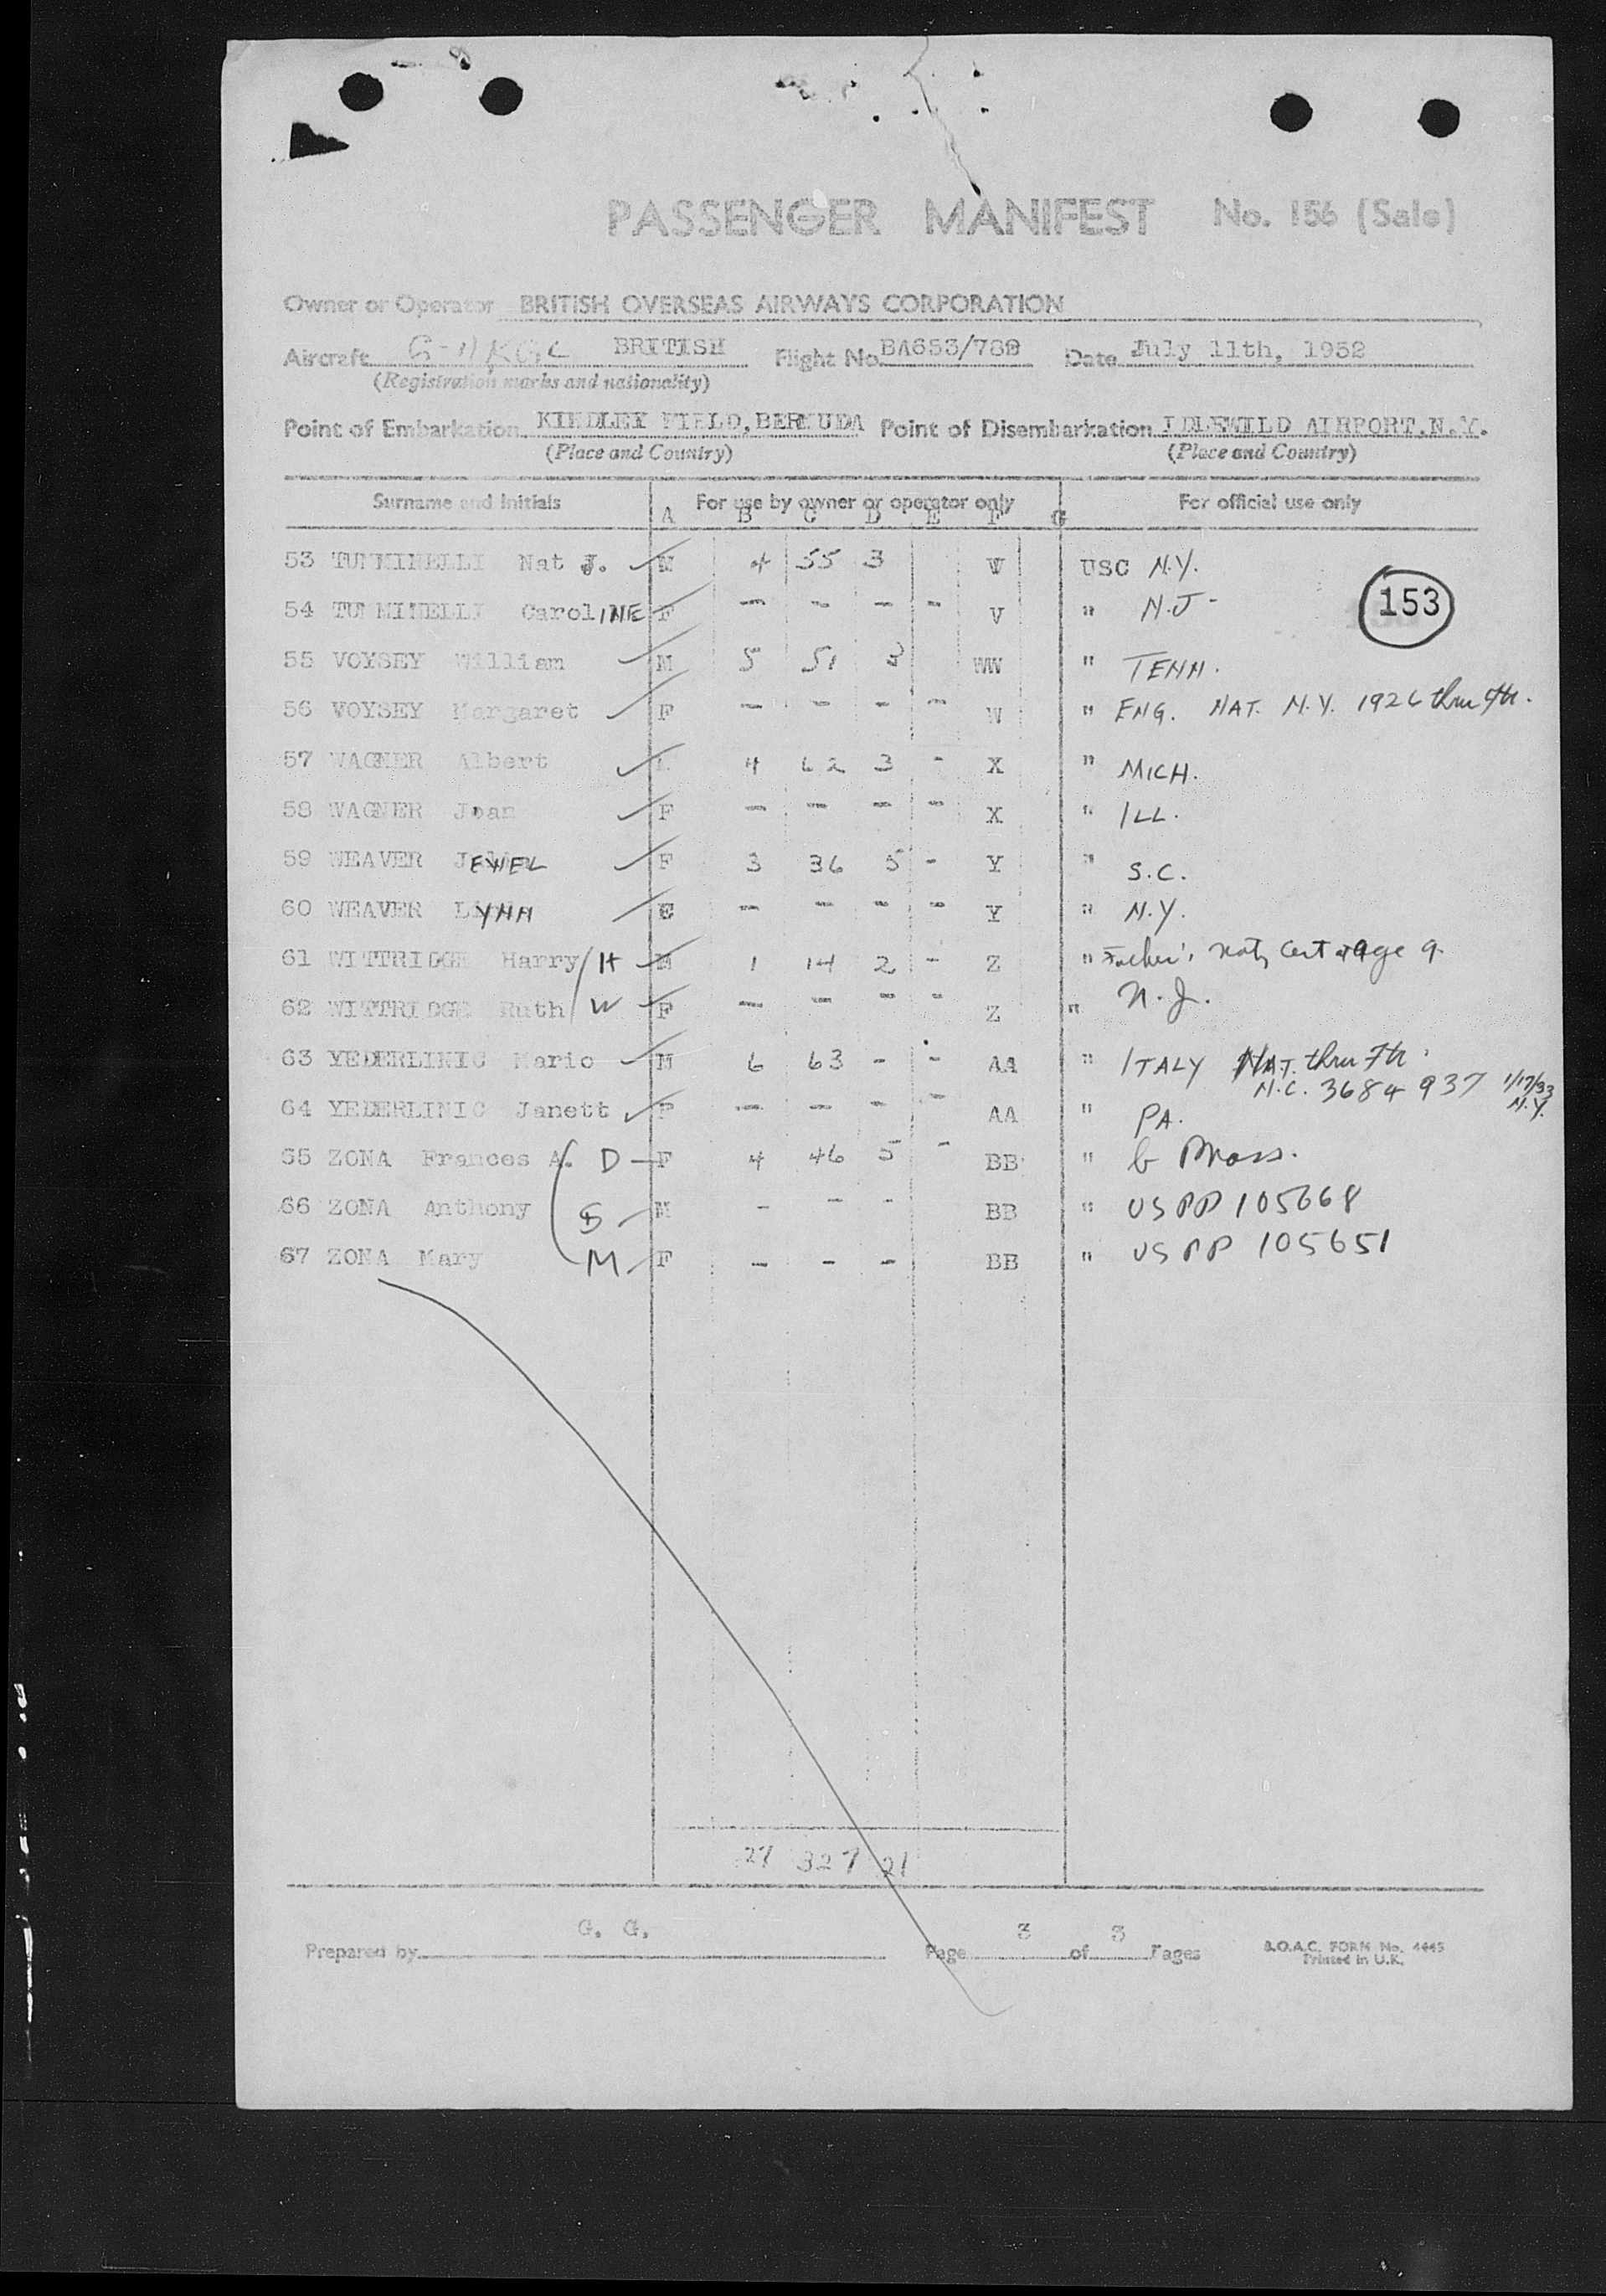 PASSENGER MANIFEST No. 156 (Sale)
Owner or Operator BRITISH OVERSEAS AIRWAYS CORPORATION
Aircraft BRITISH Flight No. BA653/789 Date July 11th, 1952
(Registration marks and nationality)
Point of Embarkation KINDLEY FIELD, BERMUDA Point of Disembarkation IDLEWILD AIRPORT, N.Y.
(Place and Country) (Place and Country)
Surname and Initials For use by owner or operator only For official use only
A B C D E F G
53 TUMMINELLI Nat J. M 4 55 3 V USC N.Y.
54 TUMMINELLI CarolINE F - - - - V " N.J -
153
55 VOYSEY William M 5 51 3 WW " TENN.
56 VOYSEY Margaret F - - - - W " ENG. NAT. N.Y. 1926 thru Fth.
57 WAGNER Albert 4 62 3 - X " MICH.
58 WAGNER Joan F - - - - X " ILL.
59 WEAVER F 3 36 5 - Y " S.C.
60 WEAVER LYNN - - - - Y " N.Y.
61 WITTRIDGE Harry / H M 1 14 2 - Z " Father's Nat, Cert at age 9.
62 WITTRIDGE Ruth / W F - - - - Z " N.J.
63 YEDERLINIC Mario M 6 63 - - AA " ITALY NAT. thru Fth.
N.C. 3684937 1/17/33 N.Y.
64 YEDERLINIC Janett F - - - - AA " PA.
65 ZONA Frances A. D F 4 46 5 - BB " b Mass.
66 ZONA Anthony M - - - BB " US PP 105668
67 ZONA Mary M F - - - BB " US PP 105651
27 327 21
G. G.
Prepared by Page 3 of 3 Pages
B.O.A.C. FORM No. 4445
Printed in U.K.